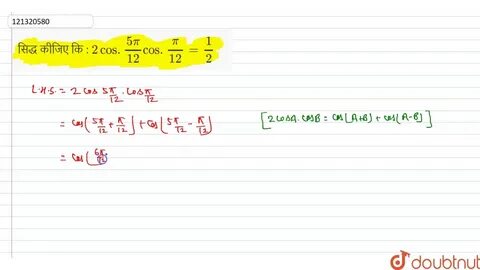 121320580
सिद्ध कीजिए कि : 2 cos. 5π/12 cos. π/12 = 1/2
L.H.S. = 2 cos 5π/12 . cos π/12
= cos(5π/12 + π/12) + cos(5π/12 - π/12) [2 cosA. cosB = cos(A+B) + cos(A-B)]
= cos(6π/12
doubtnut